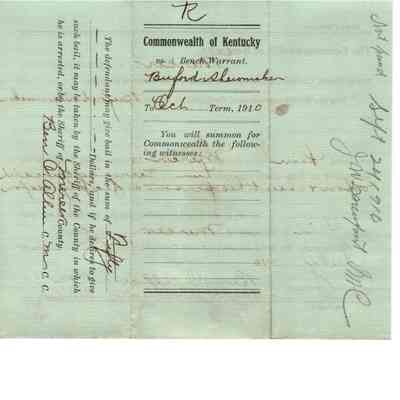 R
Commonwealth of Kentucky
vs. Bench Warrant.
Buford Shewmaker
To Oct Term, 1910
You will summon for
Commonwealth the follow-
ing witnesses:
The defendant may give bail in the sum of Fifty
Dollars, and if he desires to give
such bail, it may be taken by the Sheriff of the County in which
he is arrested, or by the Sheriff of Mercer County.
Ben C. Allin C. M. C. C.
Not found
Sept 24 1910